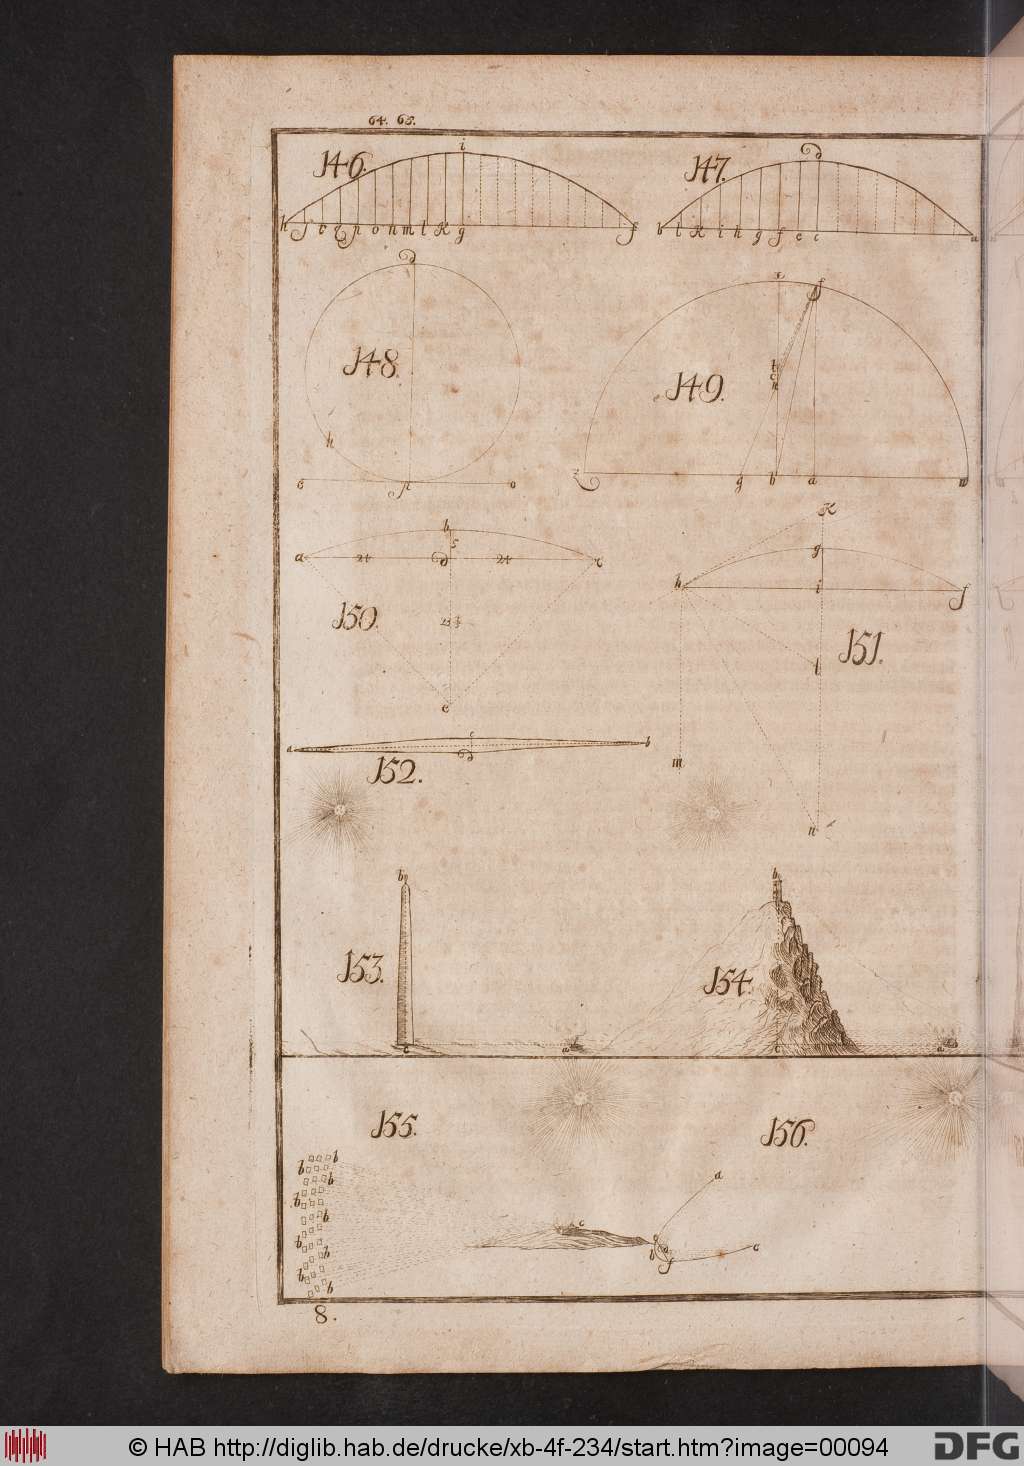 64. 65.
146. i
147. d
h s r q p o n m l K g f
b l K i h g f e c a
d
148.
h
e p o
149.
f
z g b a
b
s
a 24 d 24 c
150.
e
K
g
h i f
151.
l
m
n
a c b
d
152.
b
153.
c a
b
154.
c a
155.
b b
b
b
b
b
b
b
b
c
156.
a
b
f
c
8.
© HAB http://diglib.hab.de/drucke/xb-4f-234/start.htm?image=00094
DFG